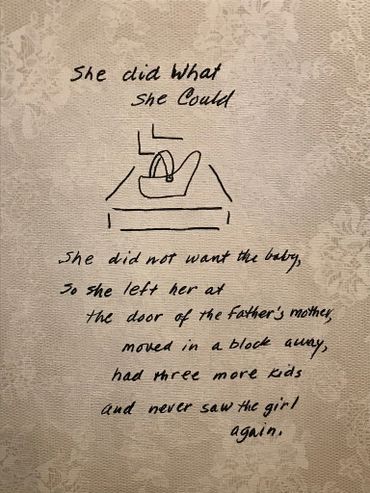 She did What
She Could
She did not want the baby,
So she left her at
the door of the Father's mother,
moved in a block away,
had three more kids
and never saw the girl
again.